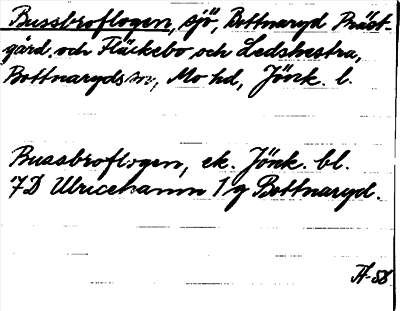 Bussbroflogen, sjö, Bottnaryd Präst-
gård, och Fläckebo och Ledshestra,
Bottnaryds sn, Mo hd, Jönk. l.
Bussbroflogen, ek. Jönk. bl.
7D Ulricehamn 1g Bottnaryd.
A-58